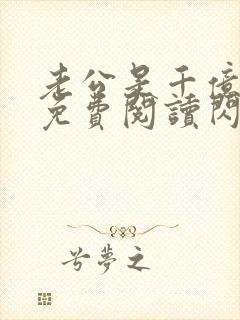 老公是千億
免費閱讀閃
兮夢之